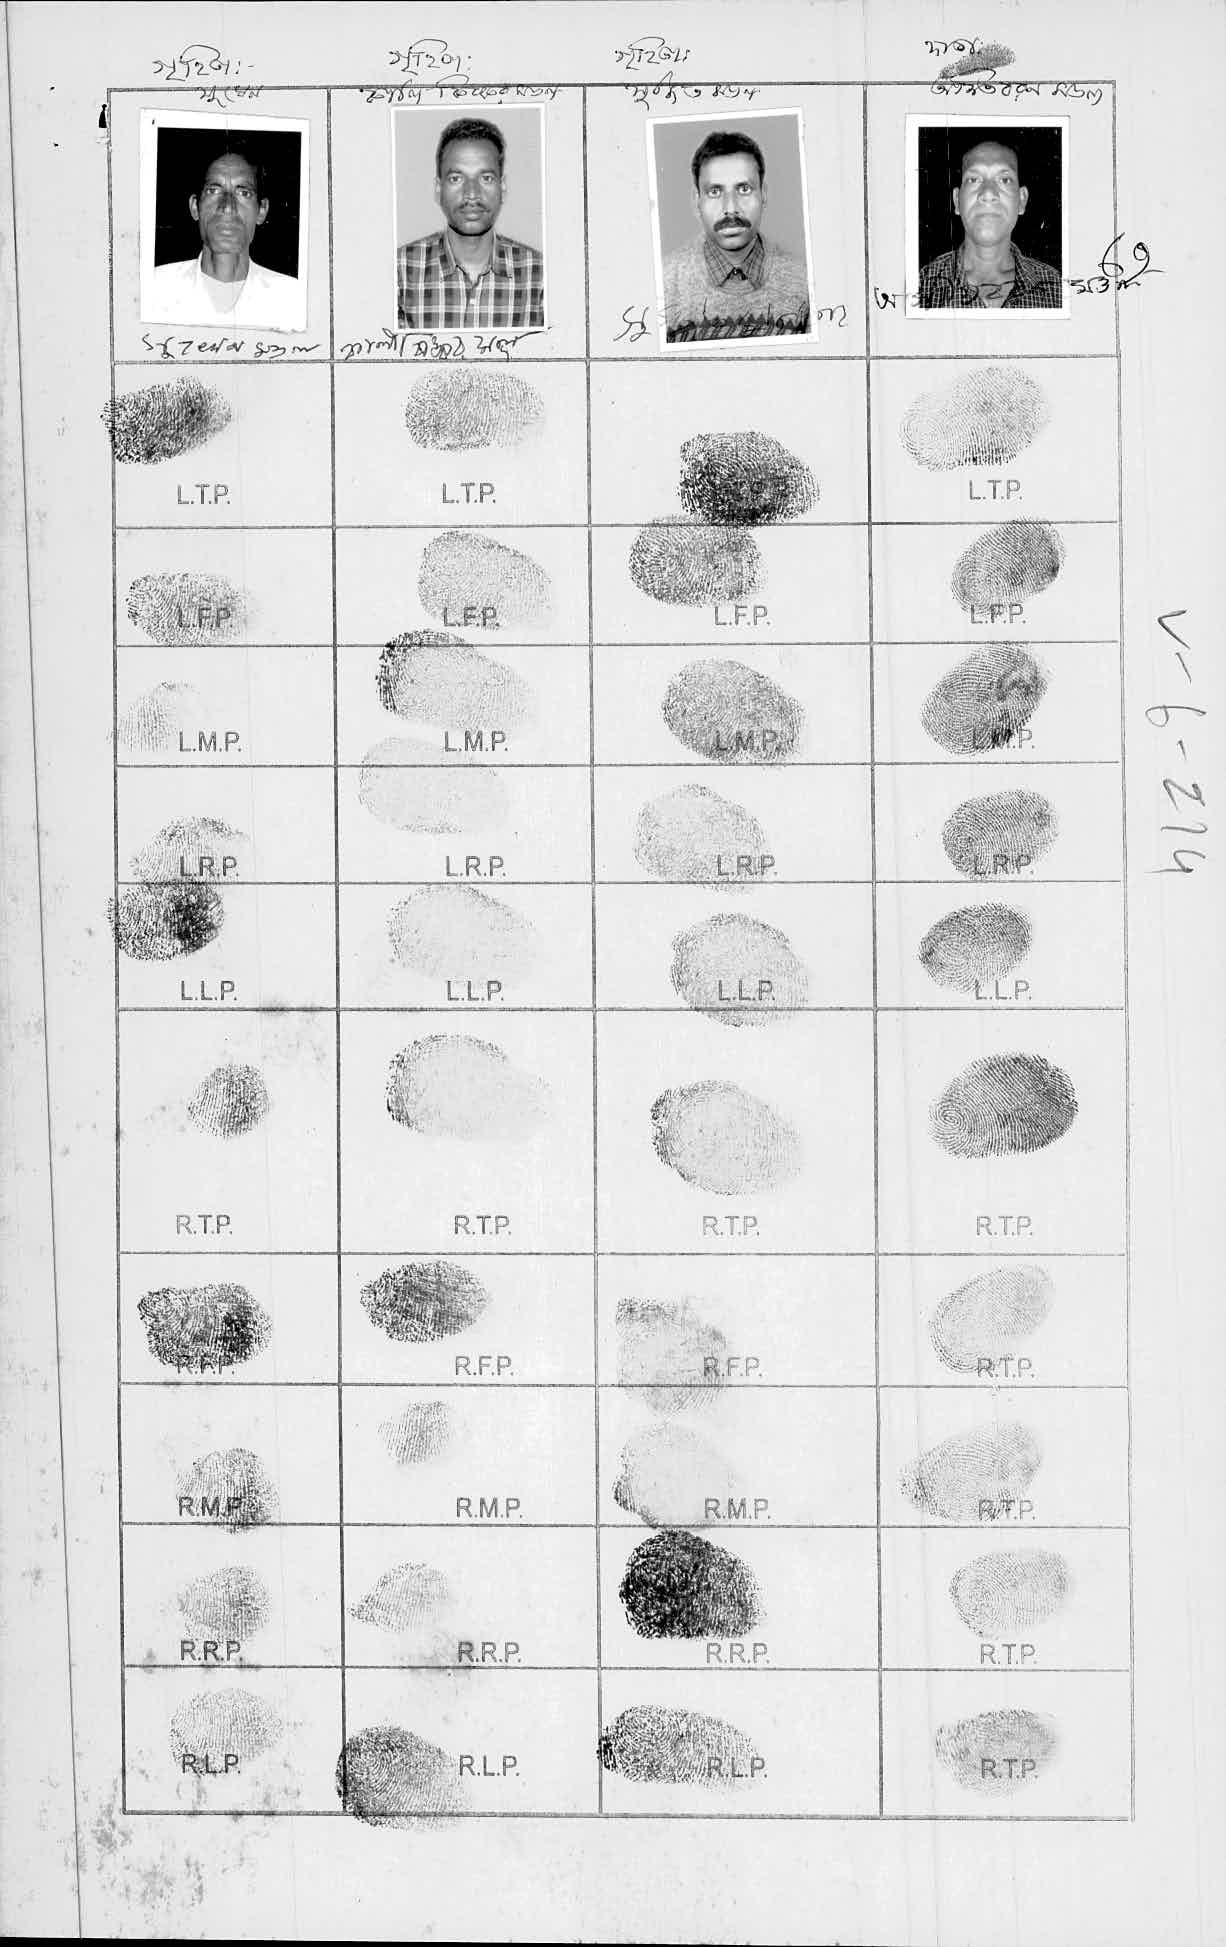 গৃহিতা:- গৃহিতা: গৃহিতা: দাতা:
সুখেন কালী কিংকর মন্ডল সুজিত মন্ডল মন্ডল
62
মন্ডল কালী কিংকর মন্ডল
L.T.P. L.T.P. L.T.P.
L.F.P. L.F.P. L.F.P. L.F.P.
L.M.P. L.M.P. L.M.P. L.M.P.
L.R.P. L.R.P. L.R.P. L.R.P.
L.L.P. L.L.P. L.L.P. L.L.P.
R.T.P. R.T.P. R.T.P. R.T.P.
R.F.P. R.F.P. R.F.P. R.T.P.
R.M.P. R.M.P. R.M.P. R.T.P.
R.R.P. R.R.P. R.R.P. R.T.P.
R.L.P. R.L.P. R.L.P. R.T.P.
V-6-214